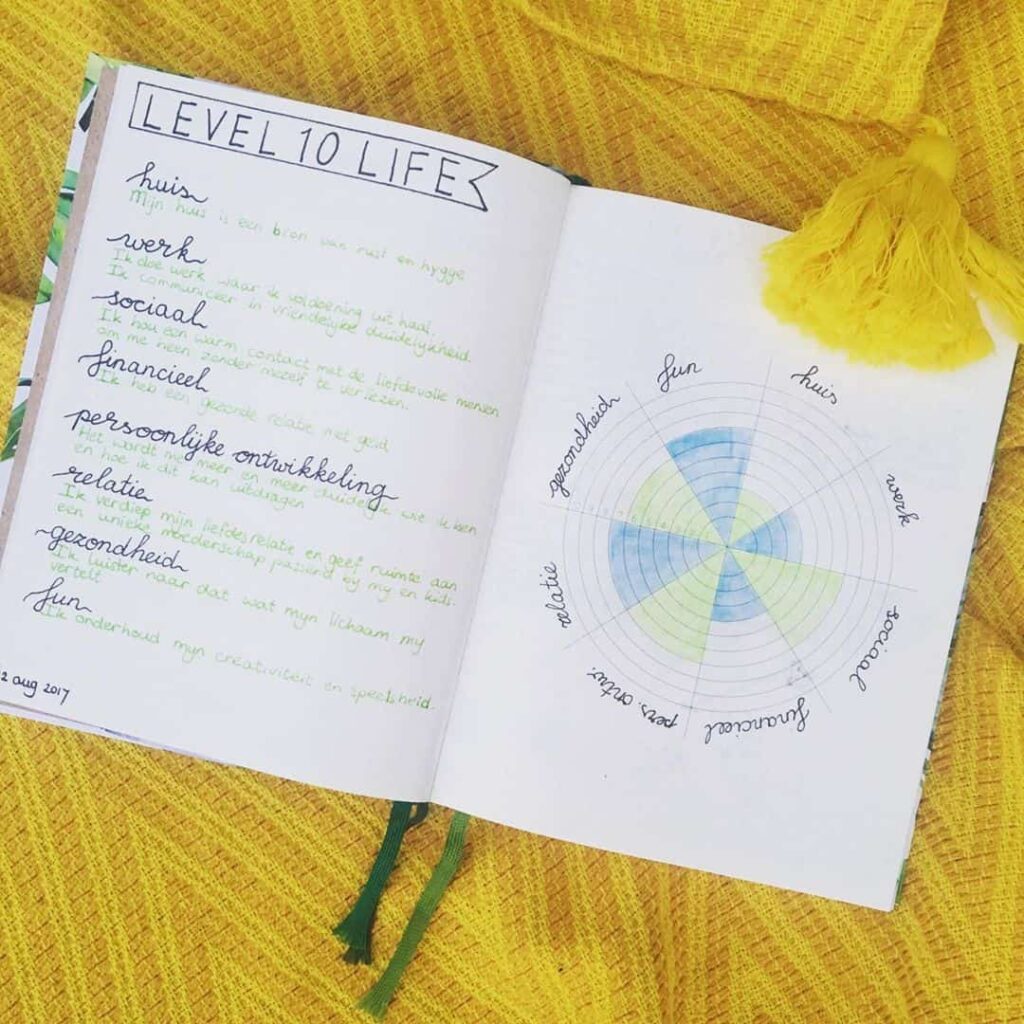 LEVEL 10 LIFE
huis
Mijn huis is een bron van rust en hygge
werk
Ik doe werk waar ik voldoening uit haal.
Ik communiceer in vriendelijke duidelijkheid.
sociaal
Ik hou een warm contact met de liefdevolle mensen
om me heen zonder mezelf te verliezen.
financieel
Ik heb een gezonde relatie met geld
persoonlijke ontwikkeling
Het wordt me meer en meer duidelijk wie ik ben
en hoe ik dit kan uitdragen
relatie
Ik verdiep mijn liefdesrelatie en geef ruimte aan
een unieke moederschap passend bij mij en kids.
gezondheid
Ik luister naar dat wat mijn lichaam mij
vertelt
fun
Ik onderhoud mijn creativiteit en speelsheid.
2 aug 2017
fun
huis
werk
sociaal
financieel
pers. ontw.
relatie
gezondheid